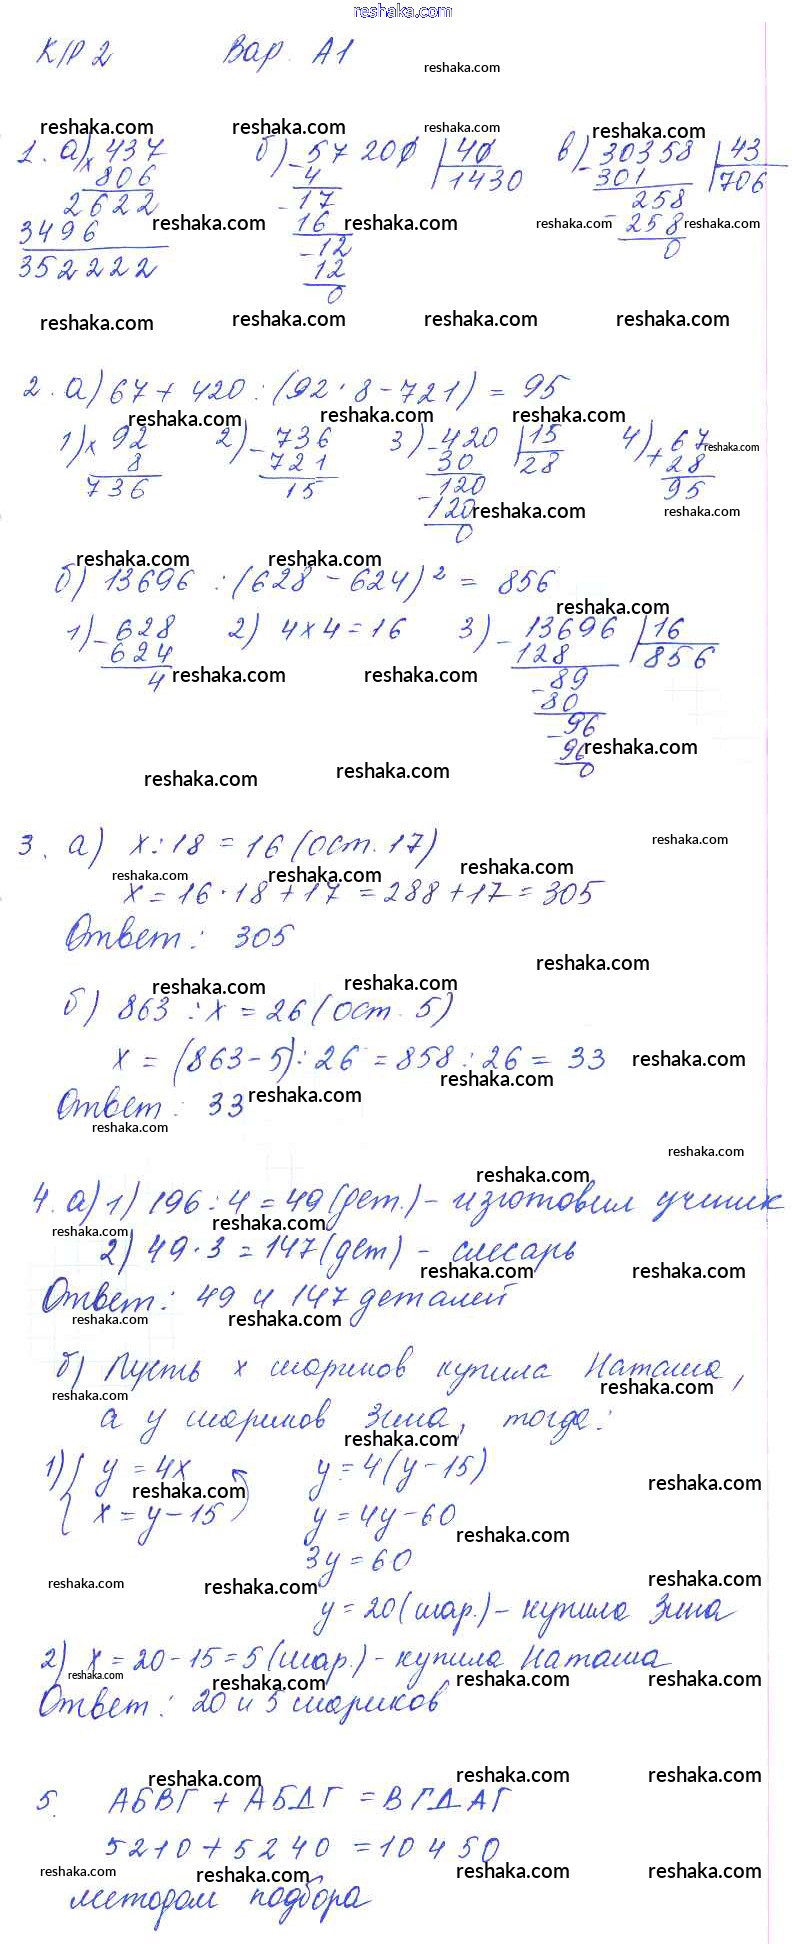 reshaka.com
К/Р 2 Вар. А1
1. а) × 437 б) - 57 200 | 40 в) - 30358 | 43
806 4 1430 301 706
2622 - 17 258
3496 16 - 258
352222 - 12 0
12
0
2. а) 67 + 420 : (92 · 8 - 721) = 95
1) × 92 2) - 736 3) - 420 | 15 4) + 67
8 721 30 28 28
736 15 - 120 95
120
0
б) 13696 : (628 - 624)² = 856
1) - 628 2) 4 × 4 = 16 3) - 13696 | 16
624 128 856
4 - 89
80
- 96
96
0
3. а) х : 18 = 16 (ост. 17)
х = 16 · 18 + 17 = 288 + 17 = 305
Ответ: 305
б) 863 : х = 26 (ост. 5)
х = (863 - 5) : 26 = 858 : 26 = 33
Ответ: 33
4. а) 1) 196 : 4 = 49 (дет.) - изготовил ученик
2) 49 · 3 = 147 (дет) - слесарь
Ответ: 49 и 147 деталей
б) Пусть х шариков купила Наташа,
а у шариков Зина, тогда:
1) { у = 4х у = 4(у - 15)
х = у - 15 у = 4у - 60
3у = 60
у = 20 (шар.) - купила Зина
2) х = 20 - 15 = 5 (шар.) - купила Наташа
Ответ: 20 и 5 шариков
5. АБВГ + АБДГ = ВГДАГ
5210 + 5240 = 10450
методом подбора